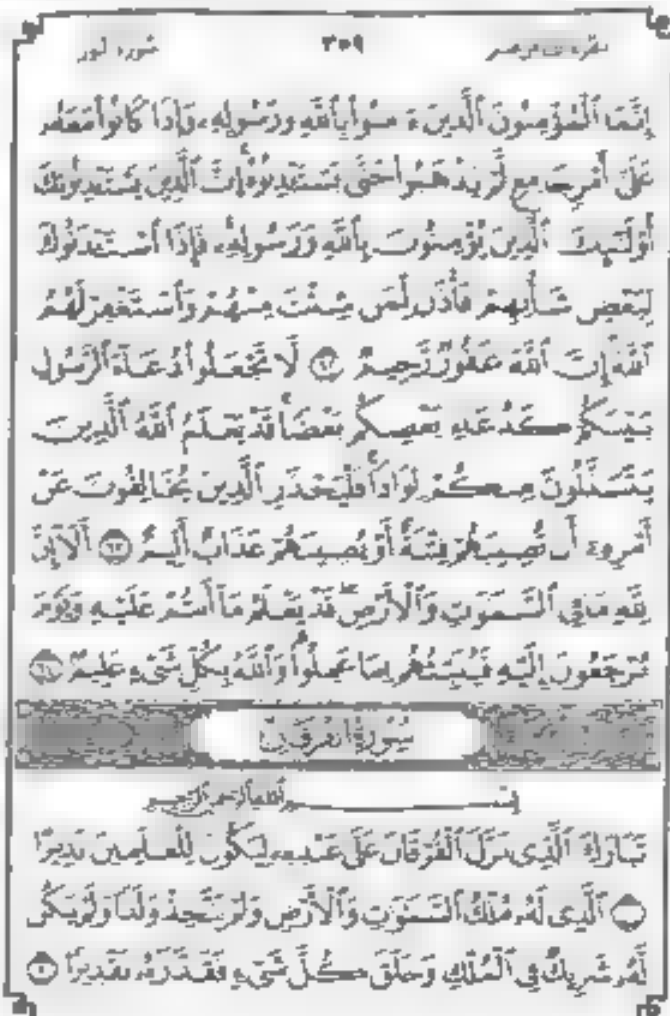 سُورَةُ النُّورِ ٣٥٩
إِنَّمَا ٱلْمُؤْمِنُونَ ٱلَّذِينَ ءَامَنُوا۟ بِٱللَّهِ وَرَسُولِهِۦ وَإِذَا كَانُوا۟ مَعَهُۥ
عَلَىٰٓ أَمْرٍ جَامِعٍ لَّمْ يَذْهَبُوا۟ حَتَّىٰ يَسْتَـْٔذِنُوهُ إِنَّ ٱلَّذِينَ يَسْتَـْٔذِنُونَكَ
أُو۟لَـٰٓئِكَ ٱلَّذِينَ يُؤْمِنُونَ بِٱللَّهِ وَرَسُولِهِۦ فَإِذَا ٱسْتَـْٔذَنُوكَ
لِبَعْضِ شَأْنِهِمْ فَأْذَن لِّمَن شِئْتَ مِنْهُمْ وَٱسْتَغْفِرْ لَهُمُ
ٱللَّهَ إِنَّ ٱللَّهَ غَفُورٌ رَّحِيمٌ ٦٢ لَّا تَجْعَلُوا۟ دُعَآءَ ٱلرَّسُولِ
بَيْنَكُمْ كَدُعَآءِ بَعْضِكُم بَعْضًا قَدْ يَعْلَمُ ٱللَّهُ ٱلَّذِينَ
يَتَسَلَّلُونَ مِنكُمْ لِوَاذًا فَلْيَحْذَرِ ٱلَّذِينَ يُخَالِفُونَ عَنْ
أَمْرِهِۦٓ أَن تُصِيبَهُمْ فِتْنَةٌ أَوْ يُصِيبَهُمْ عَذَابٌ أَلِيمٌ ٦٣ أَلَآ إِنَّ
لِلَّهِ مَا فِى ٱلسَّمَـٰوَٰتِ وَٱلْأَرْضِ قَدْ يَعْلَمُ مَآ أَنتُمْ عَلَيْهِ وَيَوْمَ
يُرْجَعُونَ إِلَيْهِ فَيُنَبِّئُهُم بِمَا عَمِلُوا۟ وَٱللَّهُ بِكُلِّ شَىْءٍ عَلِيمٌ ٦٤
سُورَةُ الفُرْقَانِ
بِسْمِ ٱللَّهِ ٱلرَّحْمَـٰنِ ٱلرَّحِيمِ
تَبَارَكَ ٱلَّذِى نَزَّلَ ٱلْفُرْقَانَ عَلَىٰ عَبْدِهِۦ لِيَكُونَ لِلْعَـٰلَمِينَ نَذِيرًا
١ ٱلَّذِى لَهُۥ مُلْكُ ٱلسَّمَـٰوَٰتِ وَٱلْأَرْضِ وَلَمْ يَتَّخِذْ وَلَدًا وَلَمْ يَكُن
لَّهُۥ شَرِيكٌ فِى ٱلْمُلْكِ وَخَلَقَ كُلَّ شَىْءٍ فَقَدَّرَهُۥ تَقْدِيرًا ٢